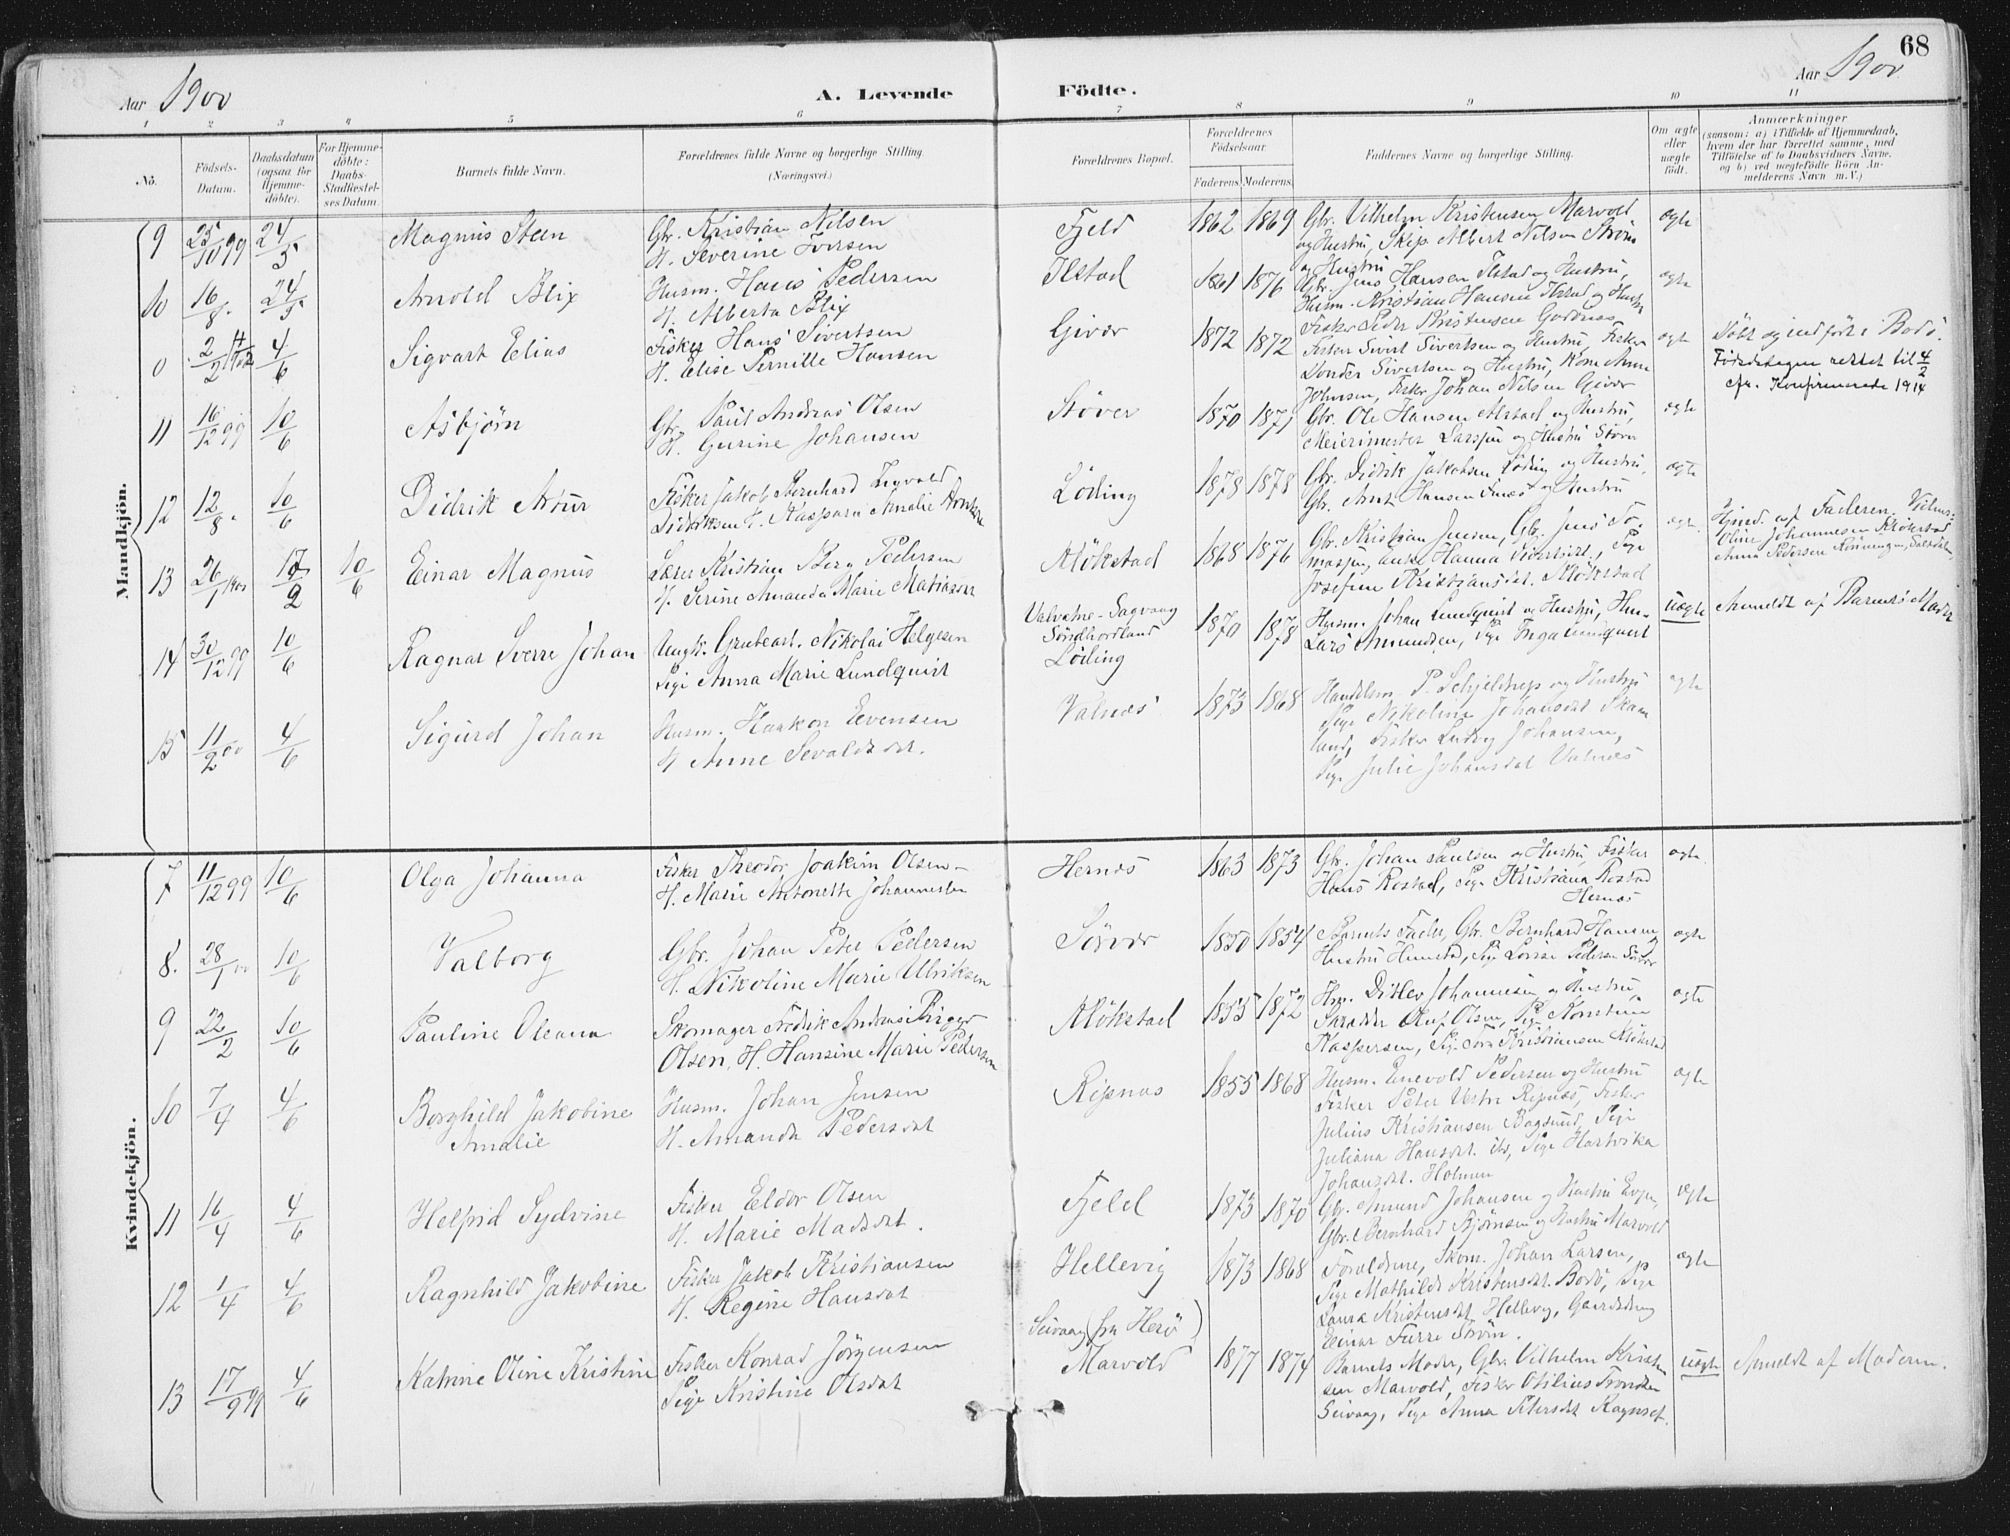 68
Aar 1900
A. Levende Födte.
Aar 1900
1 2 3 4 5 6 7 8 9 10 11
No.
Födsels-
Datum.
Daabsdatum
(ogsaa for
Hjemme-
døbte).
For Hjemme-
döbte:
Daabs-
Stadfæstel-
ses Datum.
Barnets fulde Navn.
Forældrenes fulde Navne og borgerlige Stilling
(Næringsvei.)
Forældrenes Bopæl.
Forældrenes
Födselsaar.
Faderens. Moderens.
Faddernes Navne og borgerlige Stilling.
Om ægte
eller
uægte
födt.
Anmærkninger
(saasom: a) i Tilfælde af Hjemmedaab,
hvem der har forrettet samme, med
Tilföielse af to Daabsvidners Navne,
og b) ved uægtefödte Börn An-
melderens Navn m. V.)
Mandkjön.
9 25/10 99 24/5 Magnus Steen
Gbr. Kristian Nilsen
H. Severine Iversen
Fjeld 1862 1869
Gbr. Vilhelm Kristensen Marvold
og Hustru, Skip. Albert Nilsen Ström
og Hustru
ægte
10 16/8 24/5 Arnold Blix
Husm. Hans Pedersen
H. Alberta Blix
Ilstad 1861 1876
Gbr. Jens Hansen Ilstad og Hustru,
Husm. Kristian Hansen Ilstad og Hustru
ægte
0 2/2 4/6 Sigvart Elias
Fisker Hans Sivertsen
H. Elise Pernille Hansen
Givær 1872 1872
Fisker Peder Kristensen
Fisker Sivert Sivertsen og Hustru, Fisker
Sivertsen og Hustru, Kone Anne
Johnsen, Fisker Johan Nilsen Givær
ægte
Döbt og indfört i Bodö.
Födselsdagen rettet til 4/2
cfr. Konfirmerede 1914
11 16/12 99 10/6 Asbjörn
Gbr. Paul Andreas Olsen
H. Gurine Johansen
Störver 1870 1871
Gbr. Ole Hansen Alstad og Hustru,
Meierimester Larssen og Hustru Störer
ægte
12 12/8 10/6 Didrik Artur
Fisker Jakob Bernhard Sigvald
Didriksen H. Kaspara Amalie
Löding 1878 1878
Gbr. Didrik Jakobsen Löding og Hustru,
Gbr. Arnt Hansen og Hustru
ægte
13 26/1 1900 17/2 10/6 Einar Magnus
Lærer Kristian Berg Pedersen
H. Serine Amanda Marie Matiassen
Klökstad 1868 1876
Gbr. Kristian Jensen, Gbr. Jens To-
massen, Enke Hanna, Pige
Josefine Kristiansdt. Klökstad
ægte
Hjmd. af Faderen. Vidner:
Oline Johannesen Klökstad
Anna Pedersen Rönningen, Saltdalen
14 30/12 99 10/6 Ragnar Sverre Johan
Ungk. Grubearb. Nikolai Helgesen
Pige Anna Marie Lundquist
Valvatne-Sagvaag
Söndhordland
Löding
1870 1878
Husm. Johan Lundquist og Hustru, Hm.
Lars Amundsen, Pige Inga Lundquist
uægte Anmeldt af Barnets Moder
15 11/2 00 4/6 Sigurd Johan
Husm. Haakon Evensen
H. Anne Sevaldsdt.
Valnes 1873 1868
Handelsm. P. Schjelderup og Hustru
Pige Nikoline Johansdt Skam
lund, Fisker Ludvig Johansen,
Pige Julie Johansdat Valnes
ægte
Kvindekjön.
7 11/12 99 10/6 Olga Johanna
Fisker Theodor Joakim Olsen-
H. Marie Antonette Johannessen
Hernes 1863 1873
Gbr. Johan Paulsen og Hustru, Fisker
Hans Rostad, Pige Kristiana Rostad
Hernes
ægte
8. 28/1 00 10/6 Valborg
Gbr. Johan Peter Pedersen
H. Nikoline Marie Ulriksen
Sörvær 1850 1854
Barnets Fader, Gbr. Bernhard Hansen
Hustru Hunstad, Pige Lovise Pedersen
ægte
9 22/2 10/6 Pauline Oleana
Skomager Fredrik Andreas Birger
Olsen, H. Hansine Marie Pedersen
Klökstad 1855 1872
Hm. Ditlev Johannesen og Hustru,
Skrædder Oluf Olsen, Pige Konstanse
Kaspersen, Pige Kristiansen Klökstad
ægte
10 7/4 4/6 Borghild Jakobine
Amalie
Husm. Johan Jensen
H. Amanda Pedersdat
Ripnes 1855 1868
Husm. Enevold Pedersen og Hustru
Fisker Peter Ripnes, Fisker
Julius Kristiansen Bogsund, Pige
Juliana Hansdt. ibd, Pige Hartvika
Johansdt. Holmen
ægte
11 16/4 4/6 Helfrid Sydvine
Fisker Eldor Olsen
H. Marie Madsdat.
Fjeld 1873 1870
Gbr. Amund Johansen og Hustru Evjen,
Gbr. Bernhard Bjørnsen og Hustru Marvold
ægte
12 1/4 4/6 Ragnhild Jakobine
Fisker Jakob Kristiansen
H. Regine Hansdat
Hellevig 1873 1868
Forældrene, Skom. Johan Larsen,
Pige Mathilde Kristensdt. Bodö, Pige
Laura Kristensdt. Hellevig, Gaardsdreng
Einar Furre Ström.
ægte
13 17/9 99 4/6 Katrine Oline Kristine
Fisker Konrad Jörgensen
Pige Kristine Olsdat
Seivaag (fra Herö)
Marvold
1877 1874
Barnets Moder, Gbr. Vilhelm Kristen
sen Marvold, Fisker Otilius
Seivaag, Pige Anna Petersdt
uægte Anmeldt af Moderen.